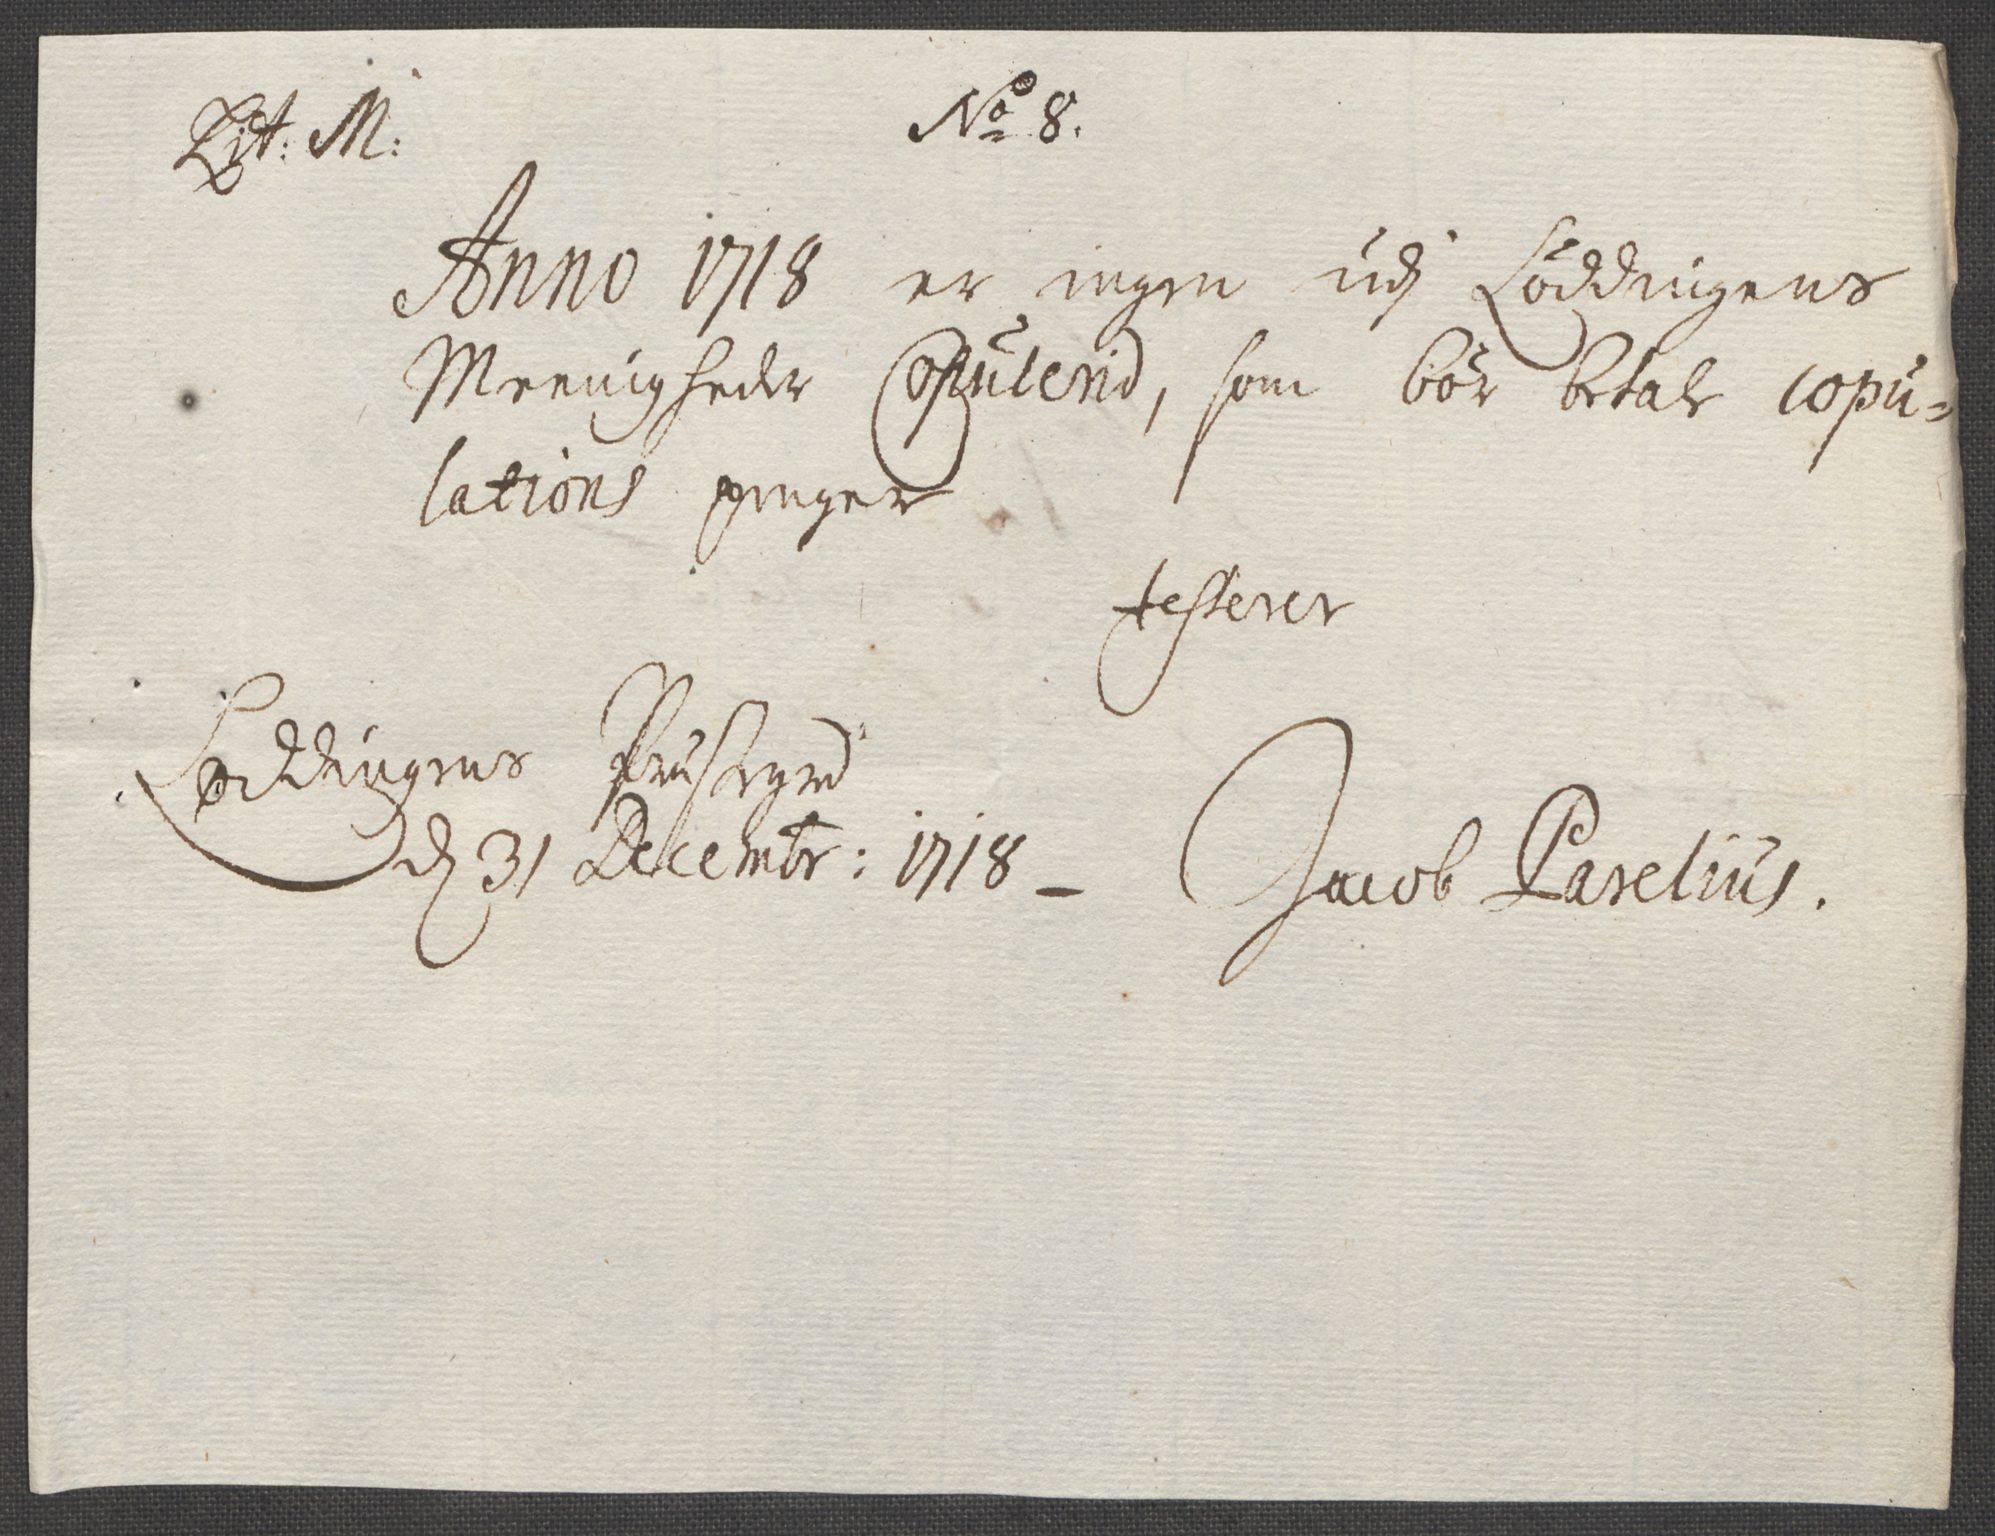 Lit: M: No 8.
Anno 1718 er ingen udj Löddingens
Meenigheder Copulerid, som bör betale copu-
lations penger
testerer
Löddingens Præstegrd
d 31 Decembr: 1718 –
Jacob Parelius.